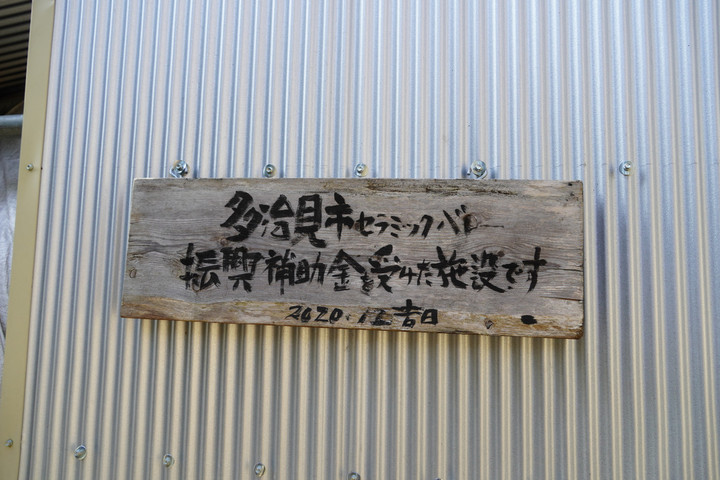 多治見市セラミックバレー
振興補助金を受けた施設です
2020.12吉日